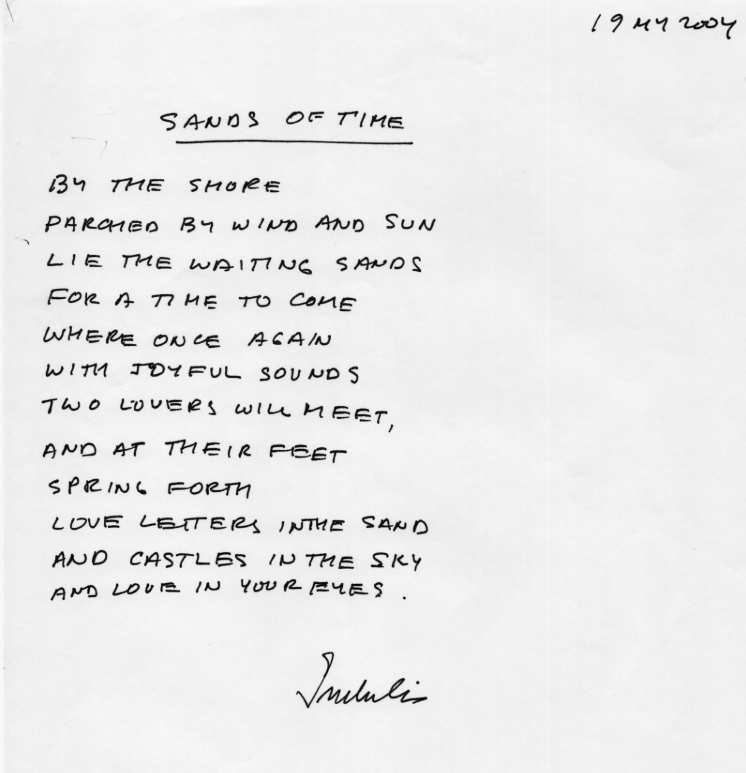 19 MY 2004
SANDS OF TIME
BY THE SHORE
PARCHED BY WIND AND SUN
LIE THE WAITING SANDS
FOR A TIME TO COME
WHERE ONCE AGAIN
WITH JOYFUL SOUNDS
TWO LOVERS WILL MEET,
AND AT THEIR FEET
SPRING FORTH
LOVE LETTERS IN THE SAND
AND CASTLES IN THE SKY
AND LOVE IN YOUR EYES.